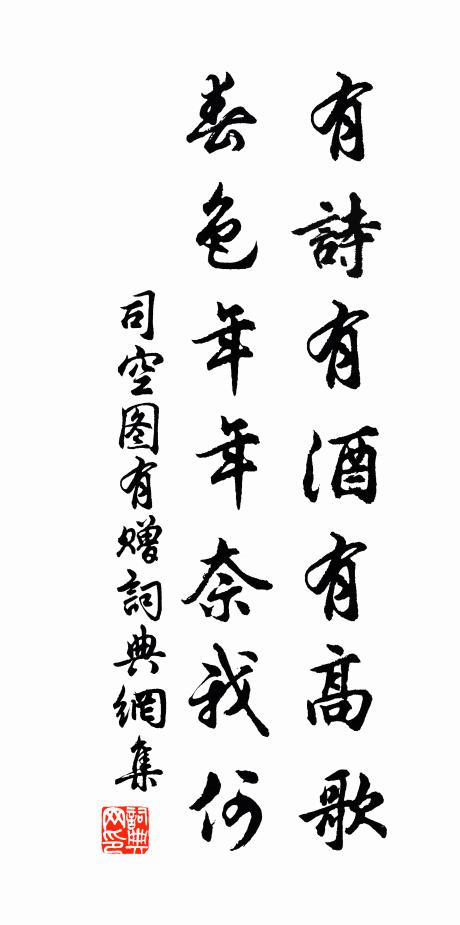 有詩有酒有高歌
春色年年奈我何
司空图有赠詞典網集
詞典网印